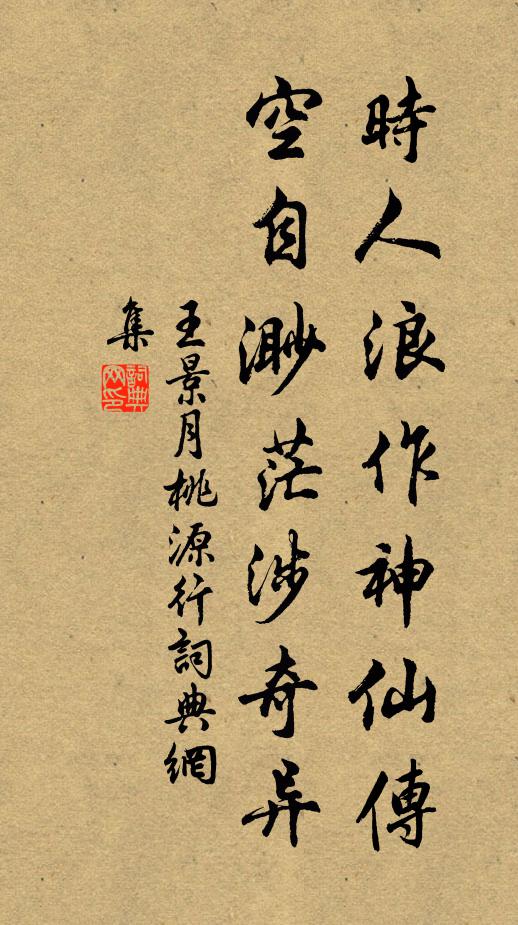 時人浪作神仙傳
空自渺茫涉奇异
王景月桃源行詞典網
集
詞典
网印